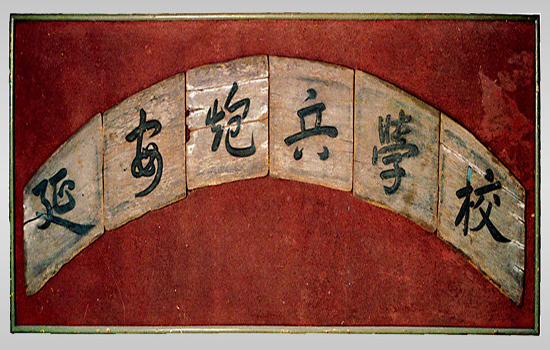 延安炮兵學校